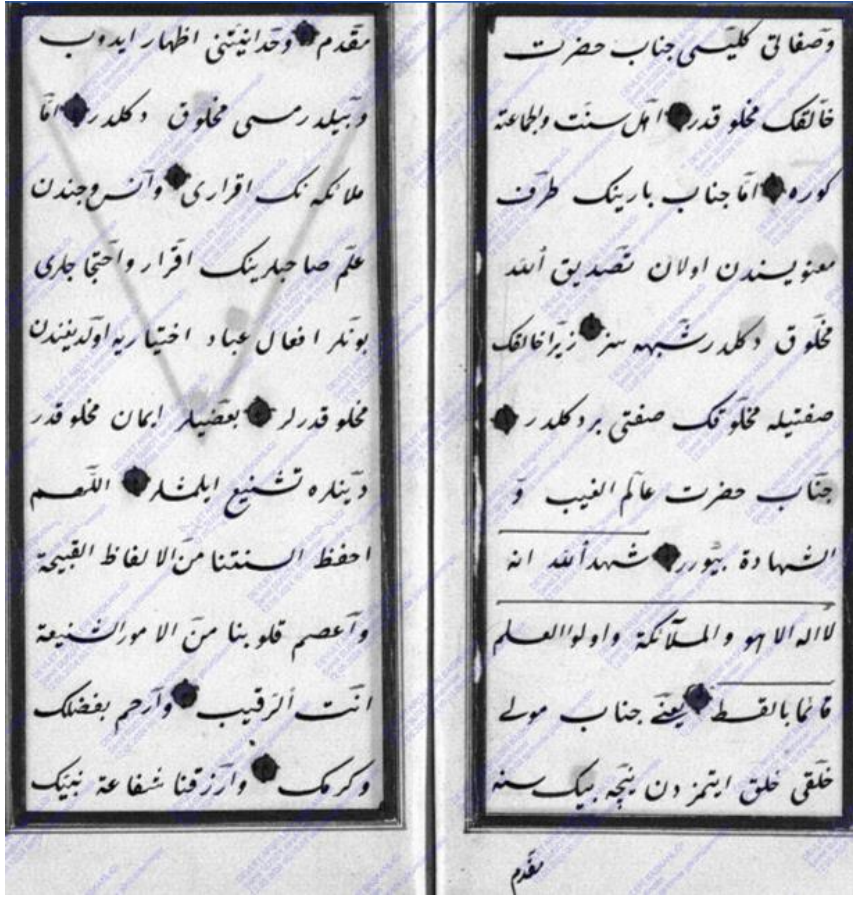 وصفاتی کلیسی جناب حضرت
خالقک مخلوقدر اهل سنت والجماعته
کوره امّا جناب بارینک طرف
معنویسندن اولان تصدیق الله
مخلوق دکلدر شبهه سز زیرا خالقک
صفتیله مخلوقک صفتی بر دکلدر
جناب حضرت عالم الغیب و
الشهادة بیورر شهد الله انه
لا اله الا هو والملآئکة واولوا العلم
قائما بالقسط یعنی جناب مولی
خلقی خلق ایتمزدن نیچه بیک سنه
مقدم
مقدم وحدانیتنی اظهار ایدوب
وبیلدرمسی مخلوق دکلدر امّا
ملائکه نک اقراری وانس وجندن
علم صاحبلرینک اقرار واحتجاجلری
بونلر افعال عباد اختیاریه اولدیغندن
مخلوقدرلر بعضیلر ایمان مخلوقدر
دیناره تشنیع ایلمشلر اللهم
احفظ السنتنا من الالفاظ القبیحة
واعصم قلوبنا من الامور الشنیعة
انت الرقیب وارحم بفضلک
وکرمک وارزقنا شفاعة نبیک